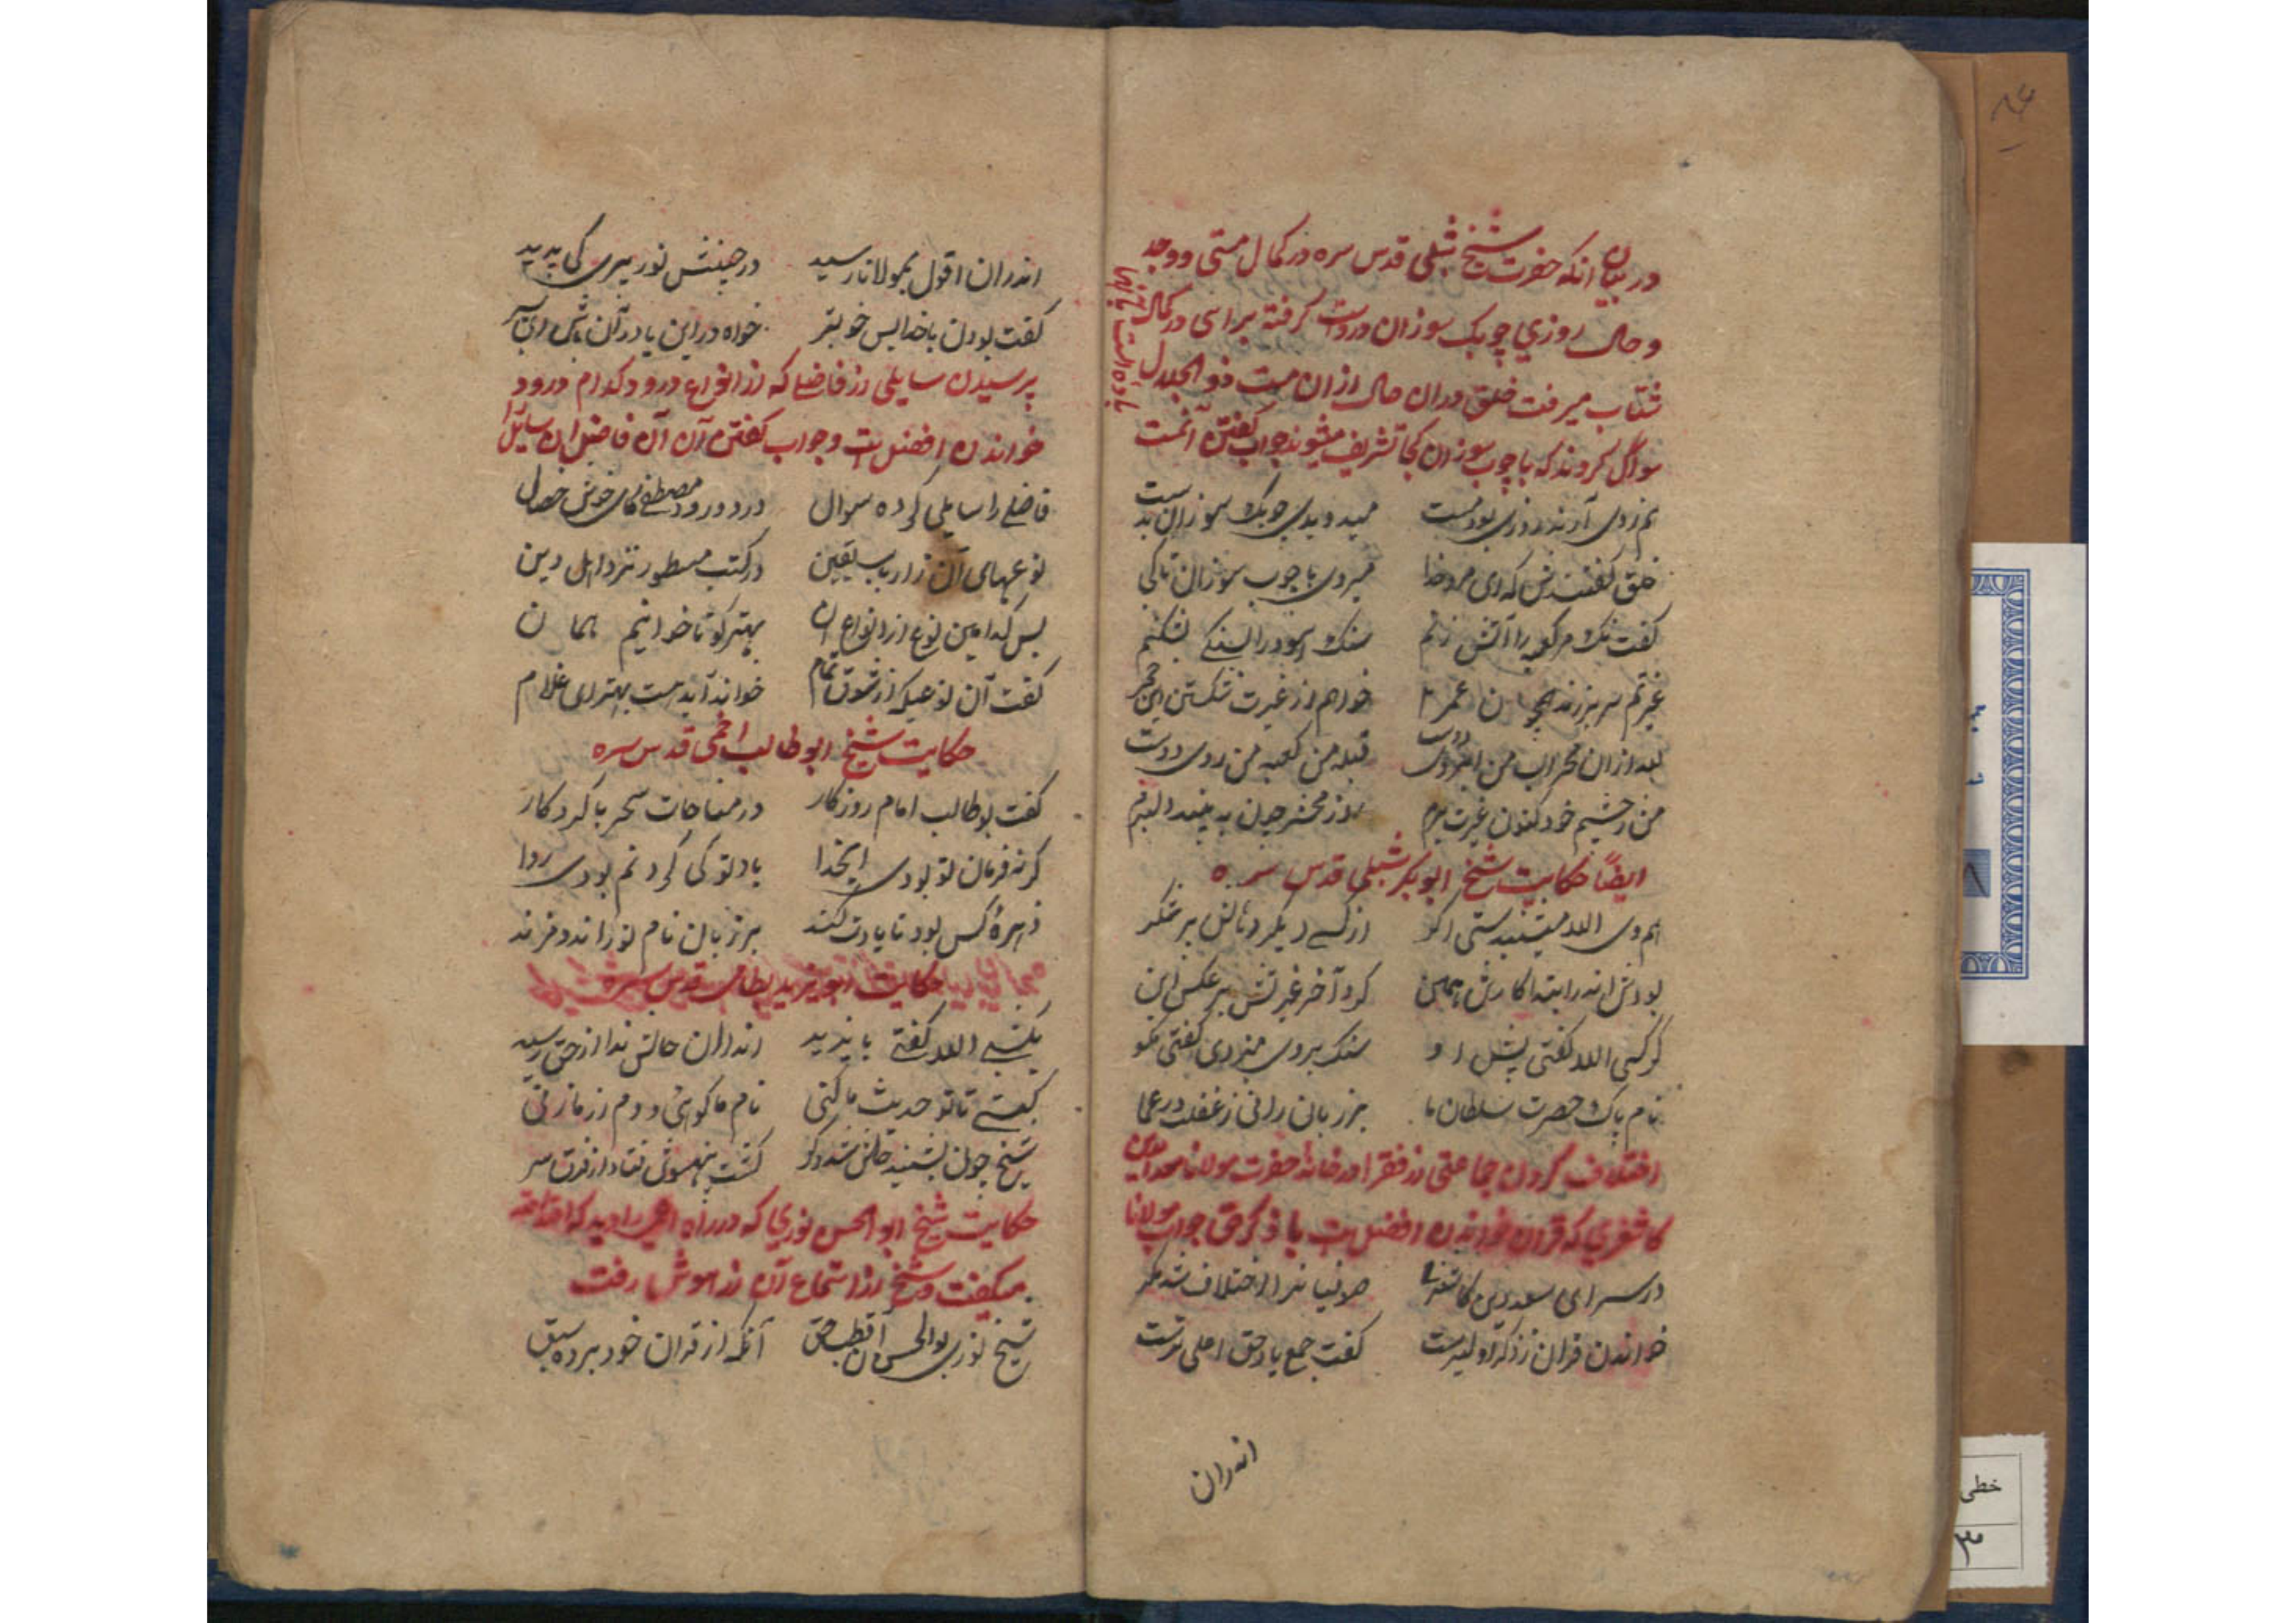 در بیان انکه حضرت شیخ شبلی قدس سره در کمال مستی و وجد
و حال روزی چوبک سوزان در دست گرفته براهی در کمال
شتاب میرفت خلق دران حال ازان مست ذوالجلال
سوال کردند که با چوب سوزان کجا تشریف میشوند جواب گفتن آنمست
روزی بود مست میدویدی چوبک سوزان بدست
خلق گفتندش که ای مرد خدا میروی با چوب سوزان تا کجا
گفت تا مر کعبه را آتش زنم سنک اسود را بسنکی بشکنم
غیرتم سر بر زند خواهم از غیرت شکستن این حجر
بعد ازان محراب من ابروی دوست قبله من کعبه من روی دوست
من ز چشم خود کنون غیرت برم روز محشر چون به بیند دلبرم
ایضا حکایت شیخ ابوبکر شبلی قدس سره
از کسی دیکر دهانش پر شکر
بودش اندر ابتدا کارش همین کرد آخر غیرتش بر عکس این
کر کسی الله کفتی پیش او سنک بر وی میزدی کفتی مکو
نام پاک حضرت سلطان ما بر زبان رانی ز غفلت در عما
اختلاف کردن جماعتی از فقرا در خانه حضرت مولانا سعدالدین
کاشغری که قران خواندن افضل است یا ذکر حق جواب مولانا
در سرای سعد دین کاشغر صوفیانرا اختلاف شد مکر
خواندن قران ز ذکر اولیترست کفت جمع یاد حق اعلی ترست
اندران
اندران اقوال بمولانا رسید
کفت بودن با خدا بس خوبتر خواه در این یا در آن باش ای پسر
پرسیدن سایلی از فاضلی که از انواع درود کدام درود
خواندن افضل است و جواب کفتن آن فاضل ان سایل
فاضلی را سایلی کرده سوال در درود مصطفای خوش خصال
نوعهای آن ز ارباب یقین در کتب مسطور نزد اهل دین
پس کدامین نوع از انواع ان بهتر کو تا خوانیم همان
کفت آن نوعیکه از شوق تمام خواند آید هست بهتر ای غلام
حکایت شیخ ابوطالب اخمی قدس سره
کفت بوطالب امام روزکار در مناجات سحر با کردکار
کرنه فرمان تو بودی ایخدا یاد تو کی کردنم بودی روا
زهره کس بود تا یادت کند بر زبان نام تو راند
حکایت ابویزید بسطامی قدس سره
یکشبی الله کفتی بایزید اندران حالش ندا از حق رسید
تا تو حدیث ما کنی نام ما کوئی و دم از ما زنی
شیخ چون بشنید حالش شد دکر کشت بیهوش فتاد از فرق سر
حکایت شیخ ابوالحسن نوری که در راه اعمی را دید که الله الله
میکفت و شیخ از استماع آن از هوش رفت
شیخ نوری بوالحسن آن قطب حق آنکه از قران خود برده سبق
خطی